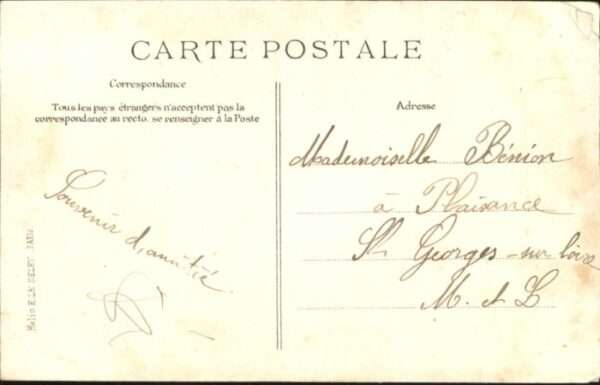 CARTE POSTALE
Correspondance
Tous les pays étrangers n'acceptent pas la
correspondance au recto, se renseigner à la Poste
Souvenir d'amitié
Adresse
Mademoiselle Bénion
à Plaisance
St Georges-sur Loire
M. et L